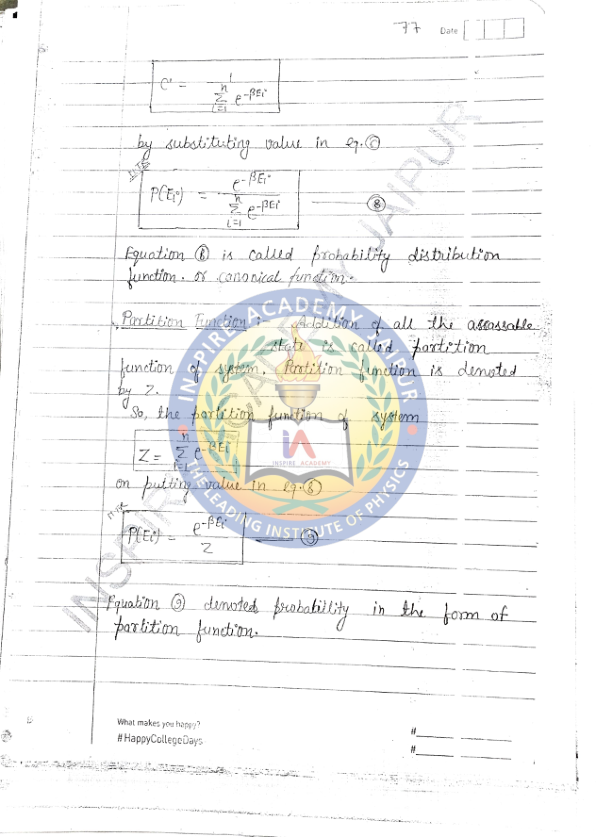 77 Date
C' = 1 / n Σ i=1 e^-βEi
by substituting value in eq. ⓒ
P(Ei) = e^-βEi / n Σ i=1 e^-βEi — ⑧
Equation ⑧ is called probability distribution
function. or canonical function:-
Partition Function :- Addition of all the assassable
state is called partition
function of system. Protition function is denoted
by Z.
So, the partition function of system
Z = n Σ e^-βEi
on putting value in eq. ⑧
P(Ei) = e^-βEi / Z — ⑨
Equation ⑨ denoted probability in the form of
partition function.
What makes you happy?
#HappyCollegeDays
#
#
INSPIRE ACADEMY JAIPUR
THE LEADING INSTITUTE OF PHYSICS
iA
INSPIRE ACADEMY
INSPIRE ACADEMY JAIPUR